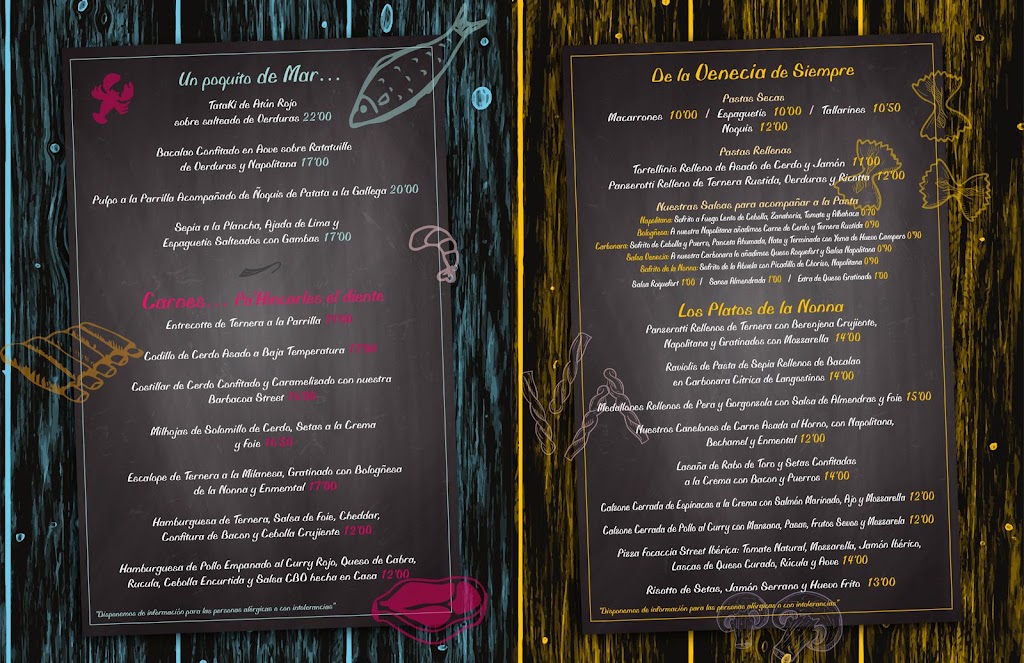 Un poquito de Mar...
TataKi de Atún Rojo
sobre salteado de Verduras 22'00
Bacalao Confitado en Aove sobre Ratatuille
de Verduras y Napolitana 17'00
Pulpo a la Parrilla Acompañado de Ñoquis de Patata a la Gallega 20'00
Sepia a la Plancha, Ajada de Lima y
Espaguetis Salteados con Gambas 17'00
Carnes... el diente
Entrecotte de Ternera a la Parrilla
Codillo de Cerdo Asado a Baja Temperatura
Costillar de Cerdo Confitado y Caramelizado con nuestra
Barbacoa Street
Milhojas de Solomillo de Cerdo, Setas a la Crema
y Foie
Escalope de Ternera a la Milanesa, Gratinado con Bologñesa
de la Nonna y Enmemtal 17'00
Hamburguesa de Ternera, Salsa de Foie, Cheddar,
Confitura de Bacon y Cebolla Crujiente 12'00
Hamburguesa de Pollo Empanado al Curry Rojo, Queso de Cabra,
Rucula, Cebolla Encurtida y Salsa CBO hecha en Casa 12'00
"Disponemos de información para las personas alérgicas o con intolerancias"
De la Venecia de Siempre
Pastas Secas
Macarrones 10'00 / Espaguetis 10'00 / Tallarines 10'50
Ñoquis 12'00
Pastas Rellenas
Tortellinis Relleno de Asado de Cerdo y Jamón 11'00
Panzerotti Relleno de Ternera Rustida, Verduras y Ricotta 12'00
Nuestras Salsas para acompañar a la Pasta
Napolitana: Sofrito a Fuego Lento de Cebolla, Zanahoria, Tomate y Albahaca 0'90
Bologñesa: A nuestra Napolitana añadimos Carne de Cerdo y Ternera Rustida 0'90
Carbonara: Sofrito de Cebolla y Puerro, Panceta Ahumada, Nata y Terminada con Yema de Huevo Campera 0'90
Salsa Venecia: A nuestra Carbonara le añadimos Queso Roquefort y Salsa Napolitana 0'90
Sofrito de la Nonna: Sofrito de la Abuela con Picadillo de Chorizo, Napolitana 0'90
Salsa Roquefort 1'00 / Sansa Almendrada 1'00 / Extra de Queso Gratinado 1'00
Los Platos de la Nonna
Panzerotti Rellenos de Ternera con Berenjena Crujiente,
Napolitana y Gratinados con Mozzarella 14'00
Raviolis de Pasta de Sepia Rellenos de Bacalao
en Carbonara Cítrica de Langostinos 14'00
Medallones Rellenos de Pera y Gorgonzola con Salsa de Almendras y Foie 15'00
Nuestros Canelones de Carne Asada al Horno, con Napolitana,
Bechamel y Enmental 12'00
Lasaña de Rabo de Toro y Setas Confitadas
a la Crema con Bacon y Puerros 14'00
Calzone Cerrada de Espinacas a la Crema con Salmón Marinado, Ajo y Mozzarella 12'00
Calzone Cerrada de Pollo al Curry con Manzana, Pasas, Frutos Secos y Mozzarela 12'00
Pizza Focaccia Street Ibérica: Tomate Natural, Mozzarella, Jamón Ibérico,
Lascas de Queso Curado, Rúcula y Aove 14'00
Risotto de Setas, Jamón Serrano y Huevo Frito 13'00
"Disponemos de información para las personas alérgicas o con intolerancias"